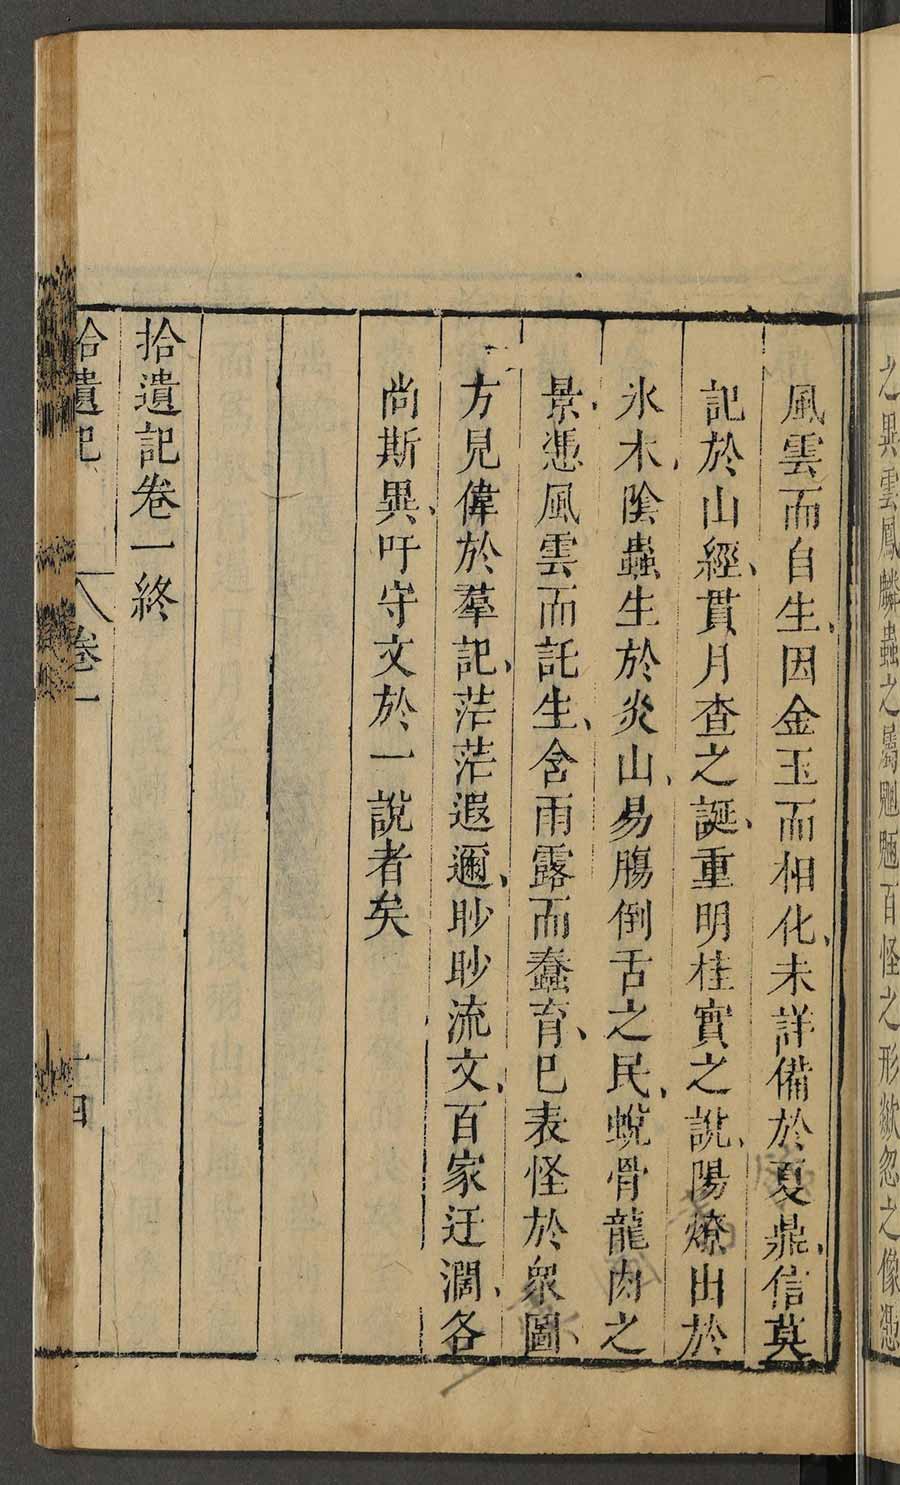 之異雲鳳麟蟲之屬魍魎百怪之形欻忽之像憑
風雲而自生、因金玉而相化、未詳備於夏鼎、信莫
記於山經、貫月查之誕、重明桂實之說、陽燎出於
氷木、陰蟲生於炎山、易膓倒舌之民、蛻骨龍肉之
景、憑風雲而託生、含雨露而蠢育、巳表怪於衆圖
方見偉於羣記、茫茫遐邇、眇眇流文、百家迂濶、各
尚斯異、吁守文於一說者矣
拾遺記卷一終
拾遺記 卷一 十四